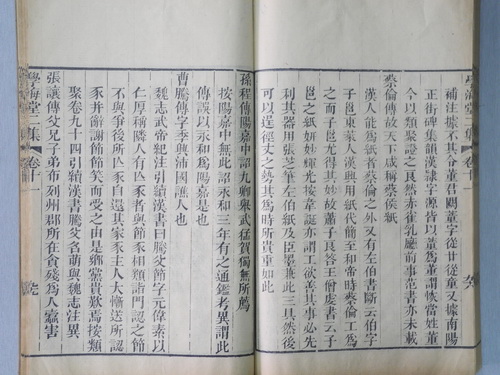 學海堂二集 卷十一
補注據不其令董君闕董字從艹從童又據南陽
正街碑集韻漢隸字源皆以董爲董謂恢當姓董
今以類聚證之良然赤雀乳廳前事范書亦未載
蔡倫傳故天下咸稱蔡侯紙
漢人能爲紙者蔡倫之外又有左伯書斷云伯字
子邑東萊人漢興用紙代簡至和帝時蔡倫工爲
之而子邑尤得其妙故蕭子良答王僧虔書云子
邑之紙妍妙輝光按韋誕亦謂工欲善其事必先
利其器用張芝筆左伯紙及臣墨兼此三具然後
可以逞徑丈之勢其爲時所貴重如此
孫程傳陽嘉中詔九卿舉武猛賀獨無所薦
按陽嘉中無此詔永和三年有之通鑑考異謂此
傳誤以永和爲陽嘉是也
曹騰傳字季興沛國譙人也
魏志武帝紀注引續漢書曰騰父節字元偉素以
仁厚稱隣人有亡豕者與節豕相類詣門認之節
不與爭後所亡豕自還其家豕主人大慚送所認
豕并辭謝節節笑而受之由是鄉黨貴歎焉按類
聚卷九十四引續漢書騰父名萌與魏志注異
張讓傳父兄子弟布列州郡所在貪殘爲人蠹害
學海堂二集 卷十一